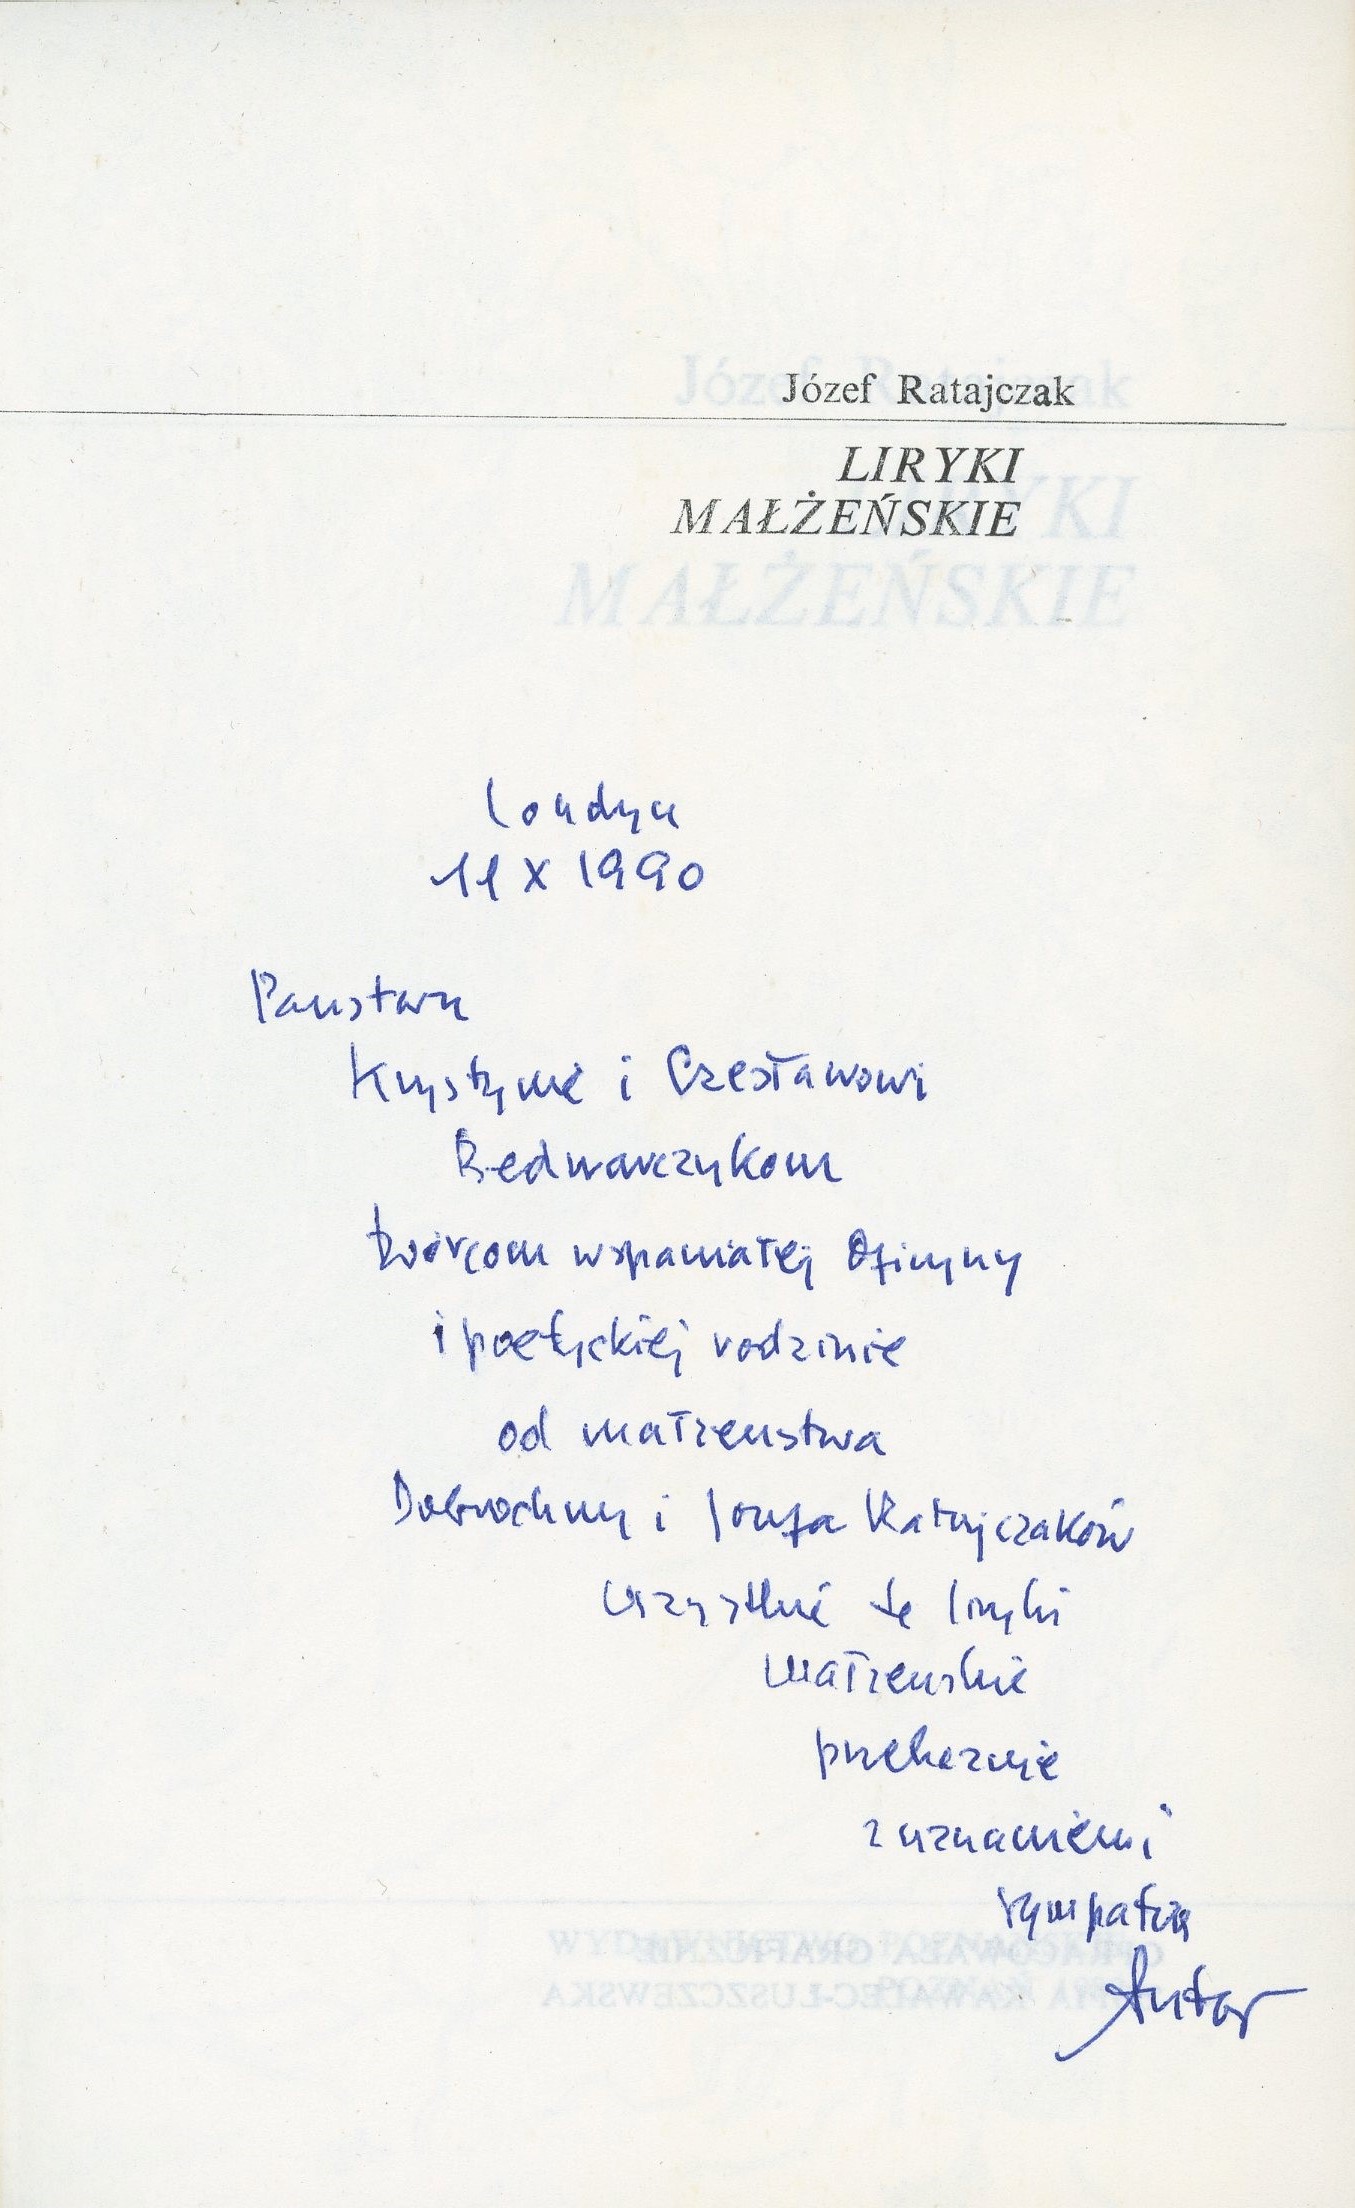 Józef Ratajczak
LIRYKI
MAŁŻEŃSKIE
Londyn
11 X 1990
Państwu
Krystynie i Czesławowi
Bednarczykom
twórcom wspaniałej Oficyny
i poetyckiej rodzinie
od małżeństwa
Dobrochny i Józefa Ratajczaków
wszystkie te liryki
małżeńskie
przekaznie
z uznaniem i
sympatią
Autor